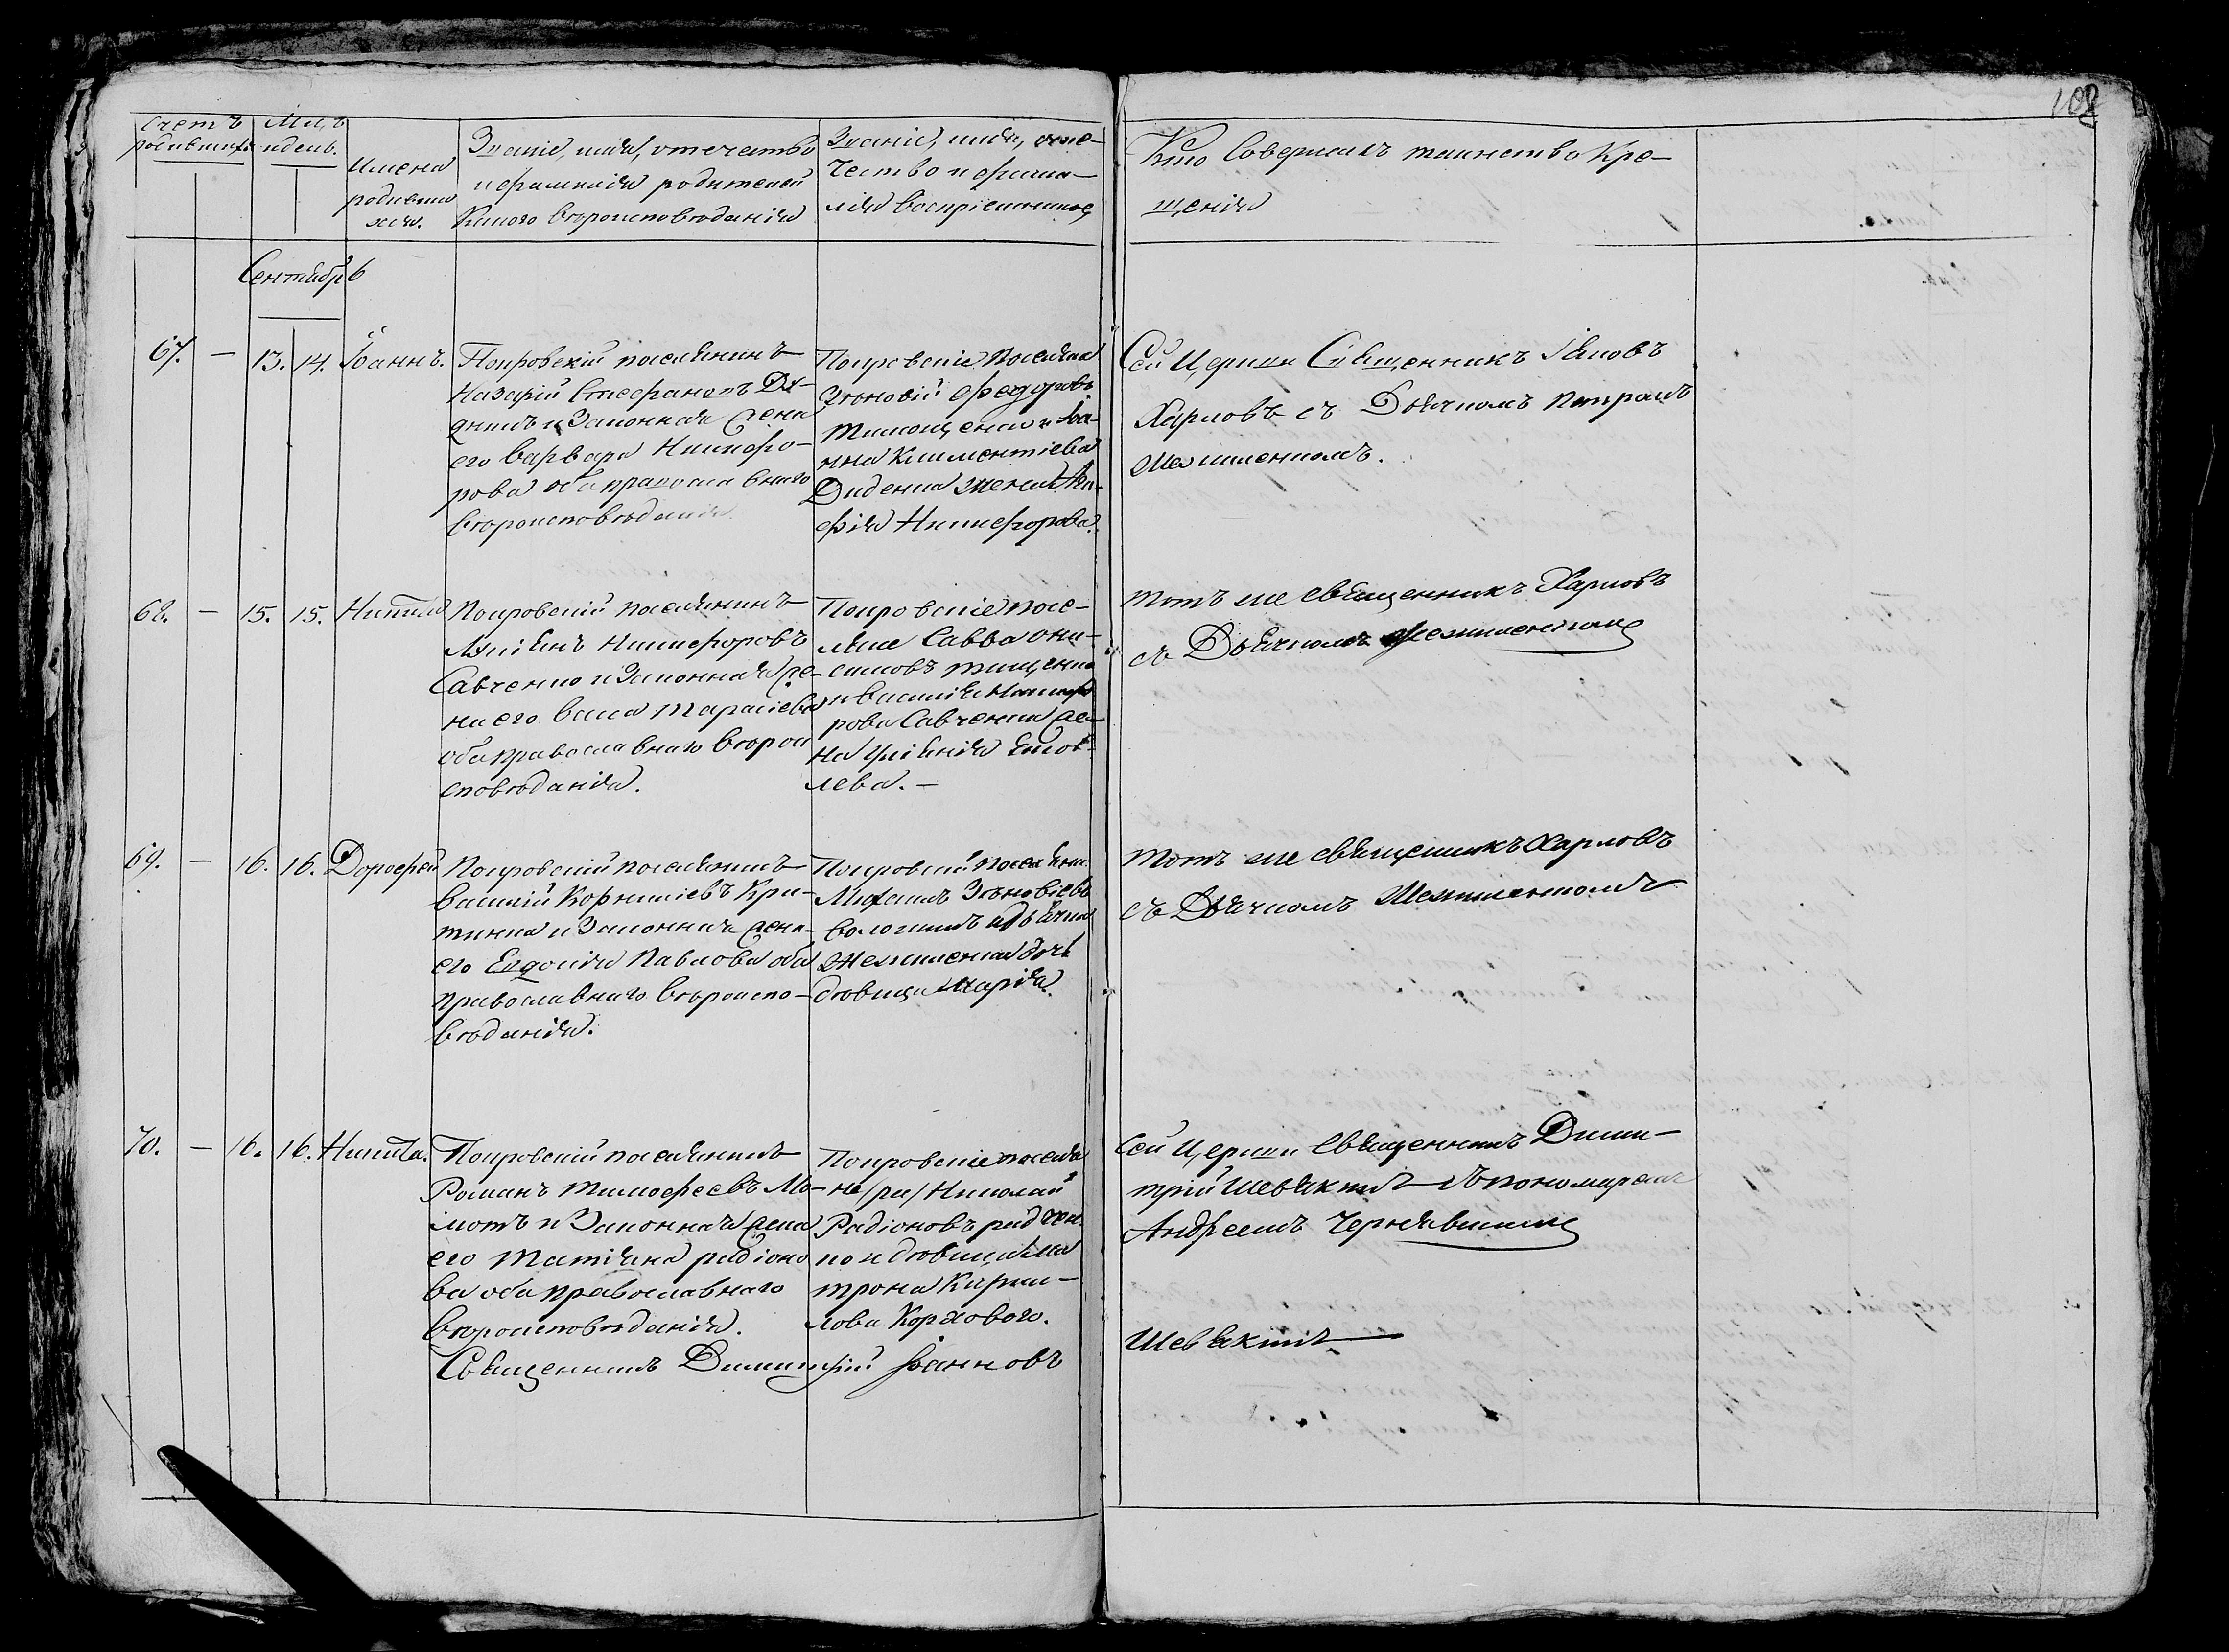 108
Счетъ
родившихся
Мц,ъ
и день.
Имена
родивши
хся.
Званіе, имя, отечество
и фамилія родителей
Какого вѣроисповѣданія
Званіе, имя, оте-
чество и фами-
лія воспріемниковъ
Кто совершалъ таинство Кре-
щенія
Сентябрь
67. — 13. 14. Іоаннъ.
Покровскій поселянинъ
Назарій Стефановъ Ди-
денко и Законная жена
его Варвара Никифо-
рова оба православнаго
вѣроисповѣданія
Покровскіе поселяне
Зѣновій Федоровъ
Тимощенко и Іоа-
нна Климентіева
Диденка жена Ага-
фія Никифорова.
Сей Церкви Священникъ Іаковъ
Харловъ съ Дьячкомъ Петромъ
Шемшенкомъ.
68. — 15. 15. Никита
Покровскій поселянинъ
Лукіянъ Никифоровъ
Савченко и Законная же-
на его Васса Тарасіева
оба православнаго вѣрои
сповѣданія.
Покровскіе посе-
ляне Савва Они-
симовъ Тищенко
и Василія Никифо
рова Савченка же-
на Уліянія Яков-
лева. —
тотъ же священникъ Харловъ
съ Дьячкомъ Шемшенкомъ
69. — 16. 16. Дорофей
Покровскій поселянинъ
Василій Корниліевъ Кри-
тинка и Законная жена
его Евдокія Павлова оба
православнаго вѣроиспо-
вѣданія.
Покровскій поселянинъ
Михаилъ Зѣновіевъ
Вологинъ и дьячка
Шемшенка дочь
дѣвица Марія.
тотъ же священникъ Харловъ
съ Дьячкомъ Шемшенкомъ
70. — 16. 16. Никита.
Покровскій поселянинъ
Романъ Тимофеевъ Мо-
лотъ и Законная жена
его Татіяна Радіоно
ва оба православнаго
вѣроисповѣданія.
Покровскіе поселя
не /ри/ Николай
Радіоновъ Радчен
ко и дѣвица Ма
трона Кирил-
лова Коржового.
Сей Церкви священникъ Дими-
трій Шевякинъ съ пономаремъ
Андреемъ Чернявскимъ
Священникъ Димитрій Іоанновъ Шевякинъ